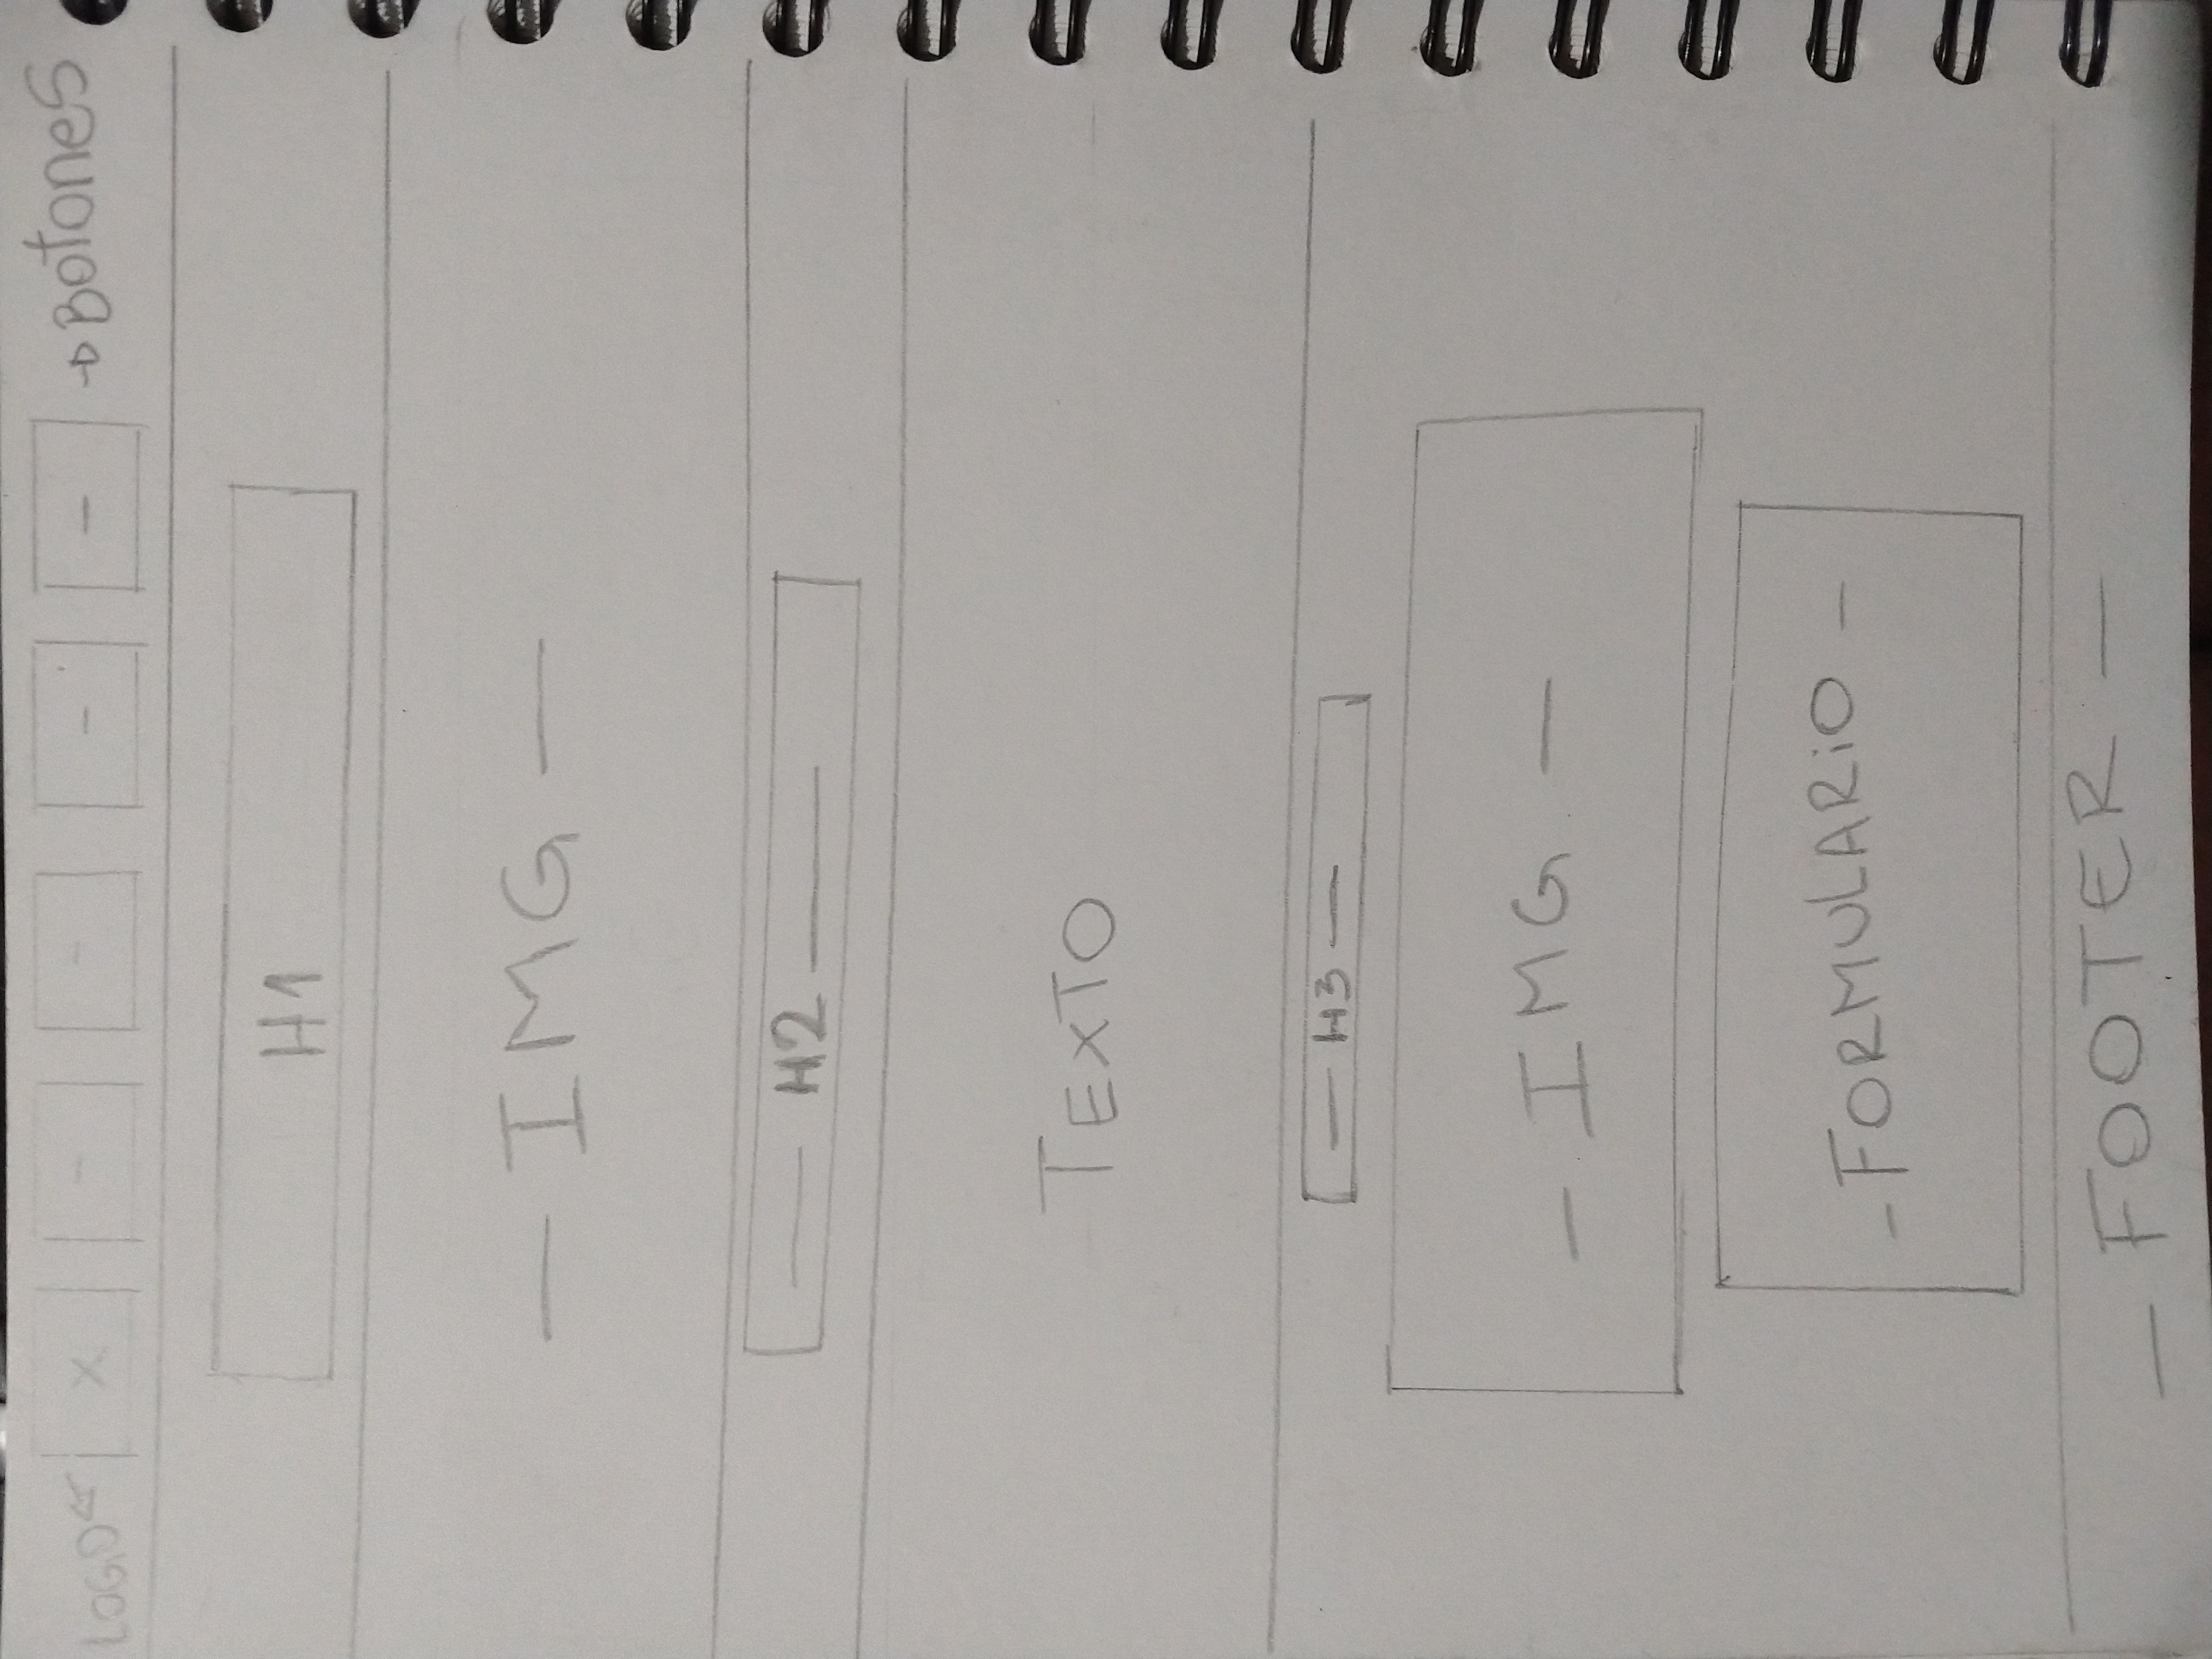 LOGO X - - - - → BotoneS
H1
— IMG —
— H2 —
TEXTO
— H3 —
— IMG —
- FORMULARiO -
— FOOTER —